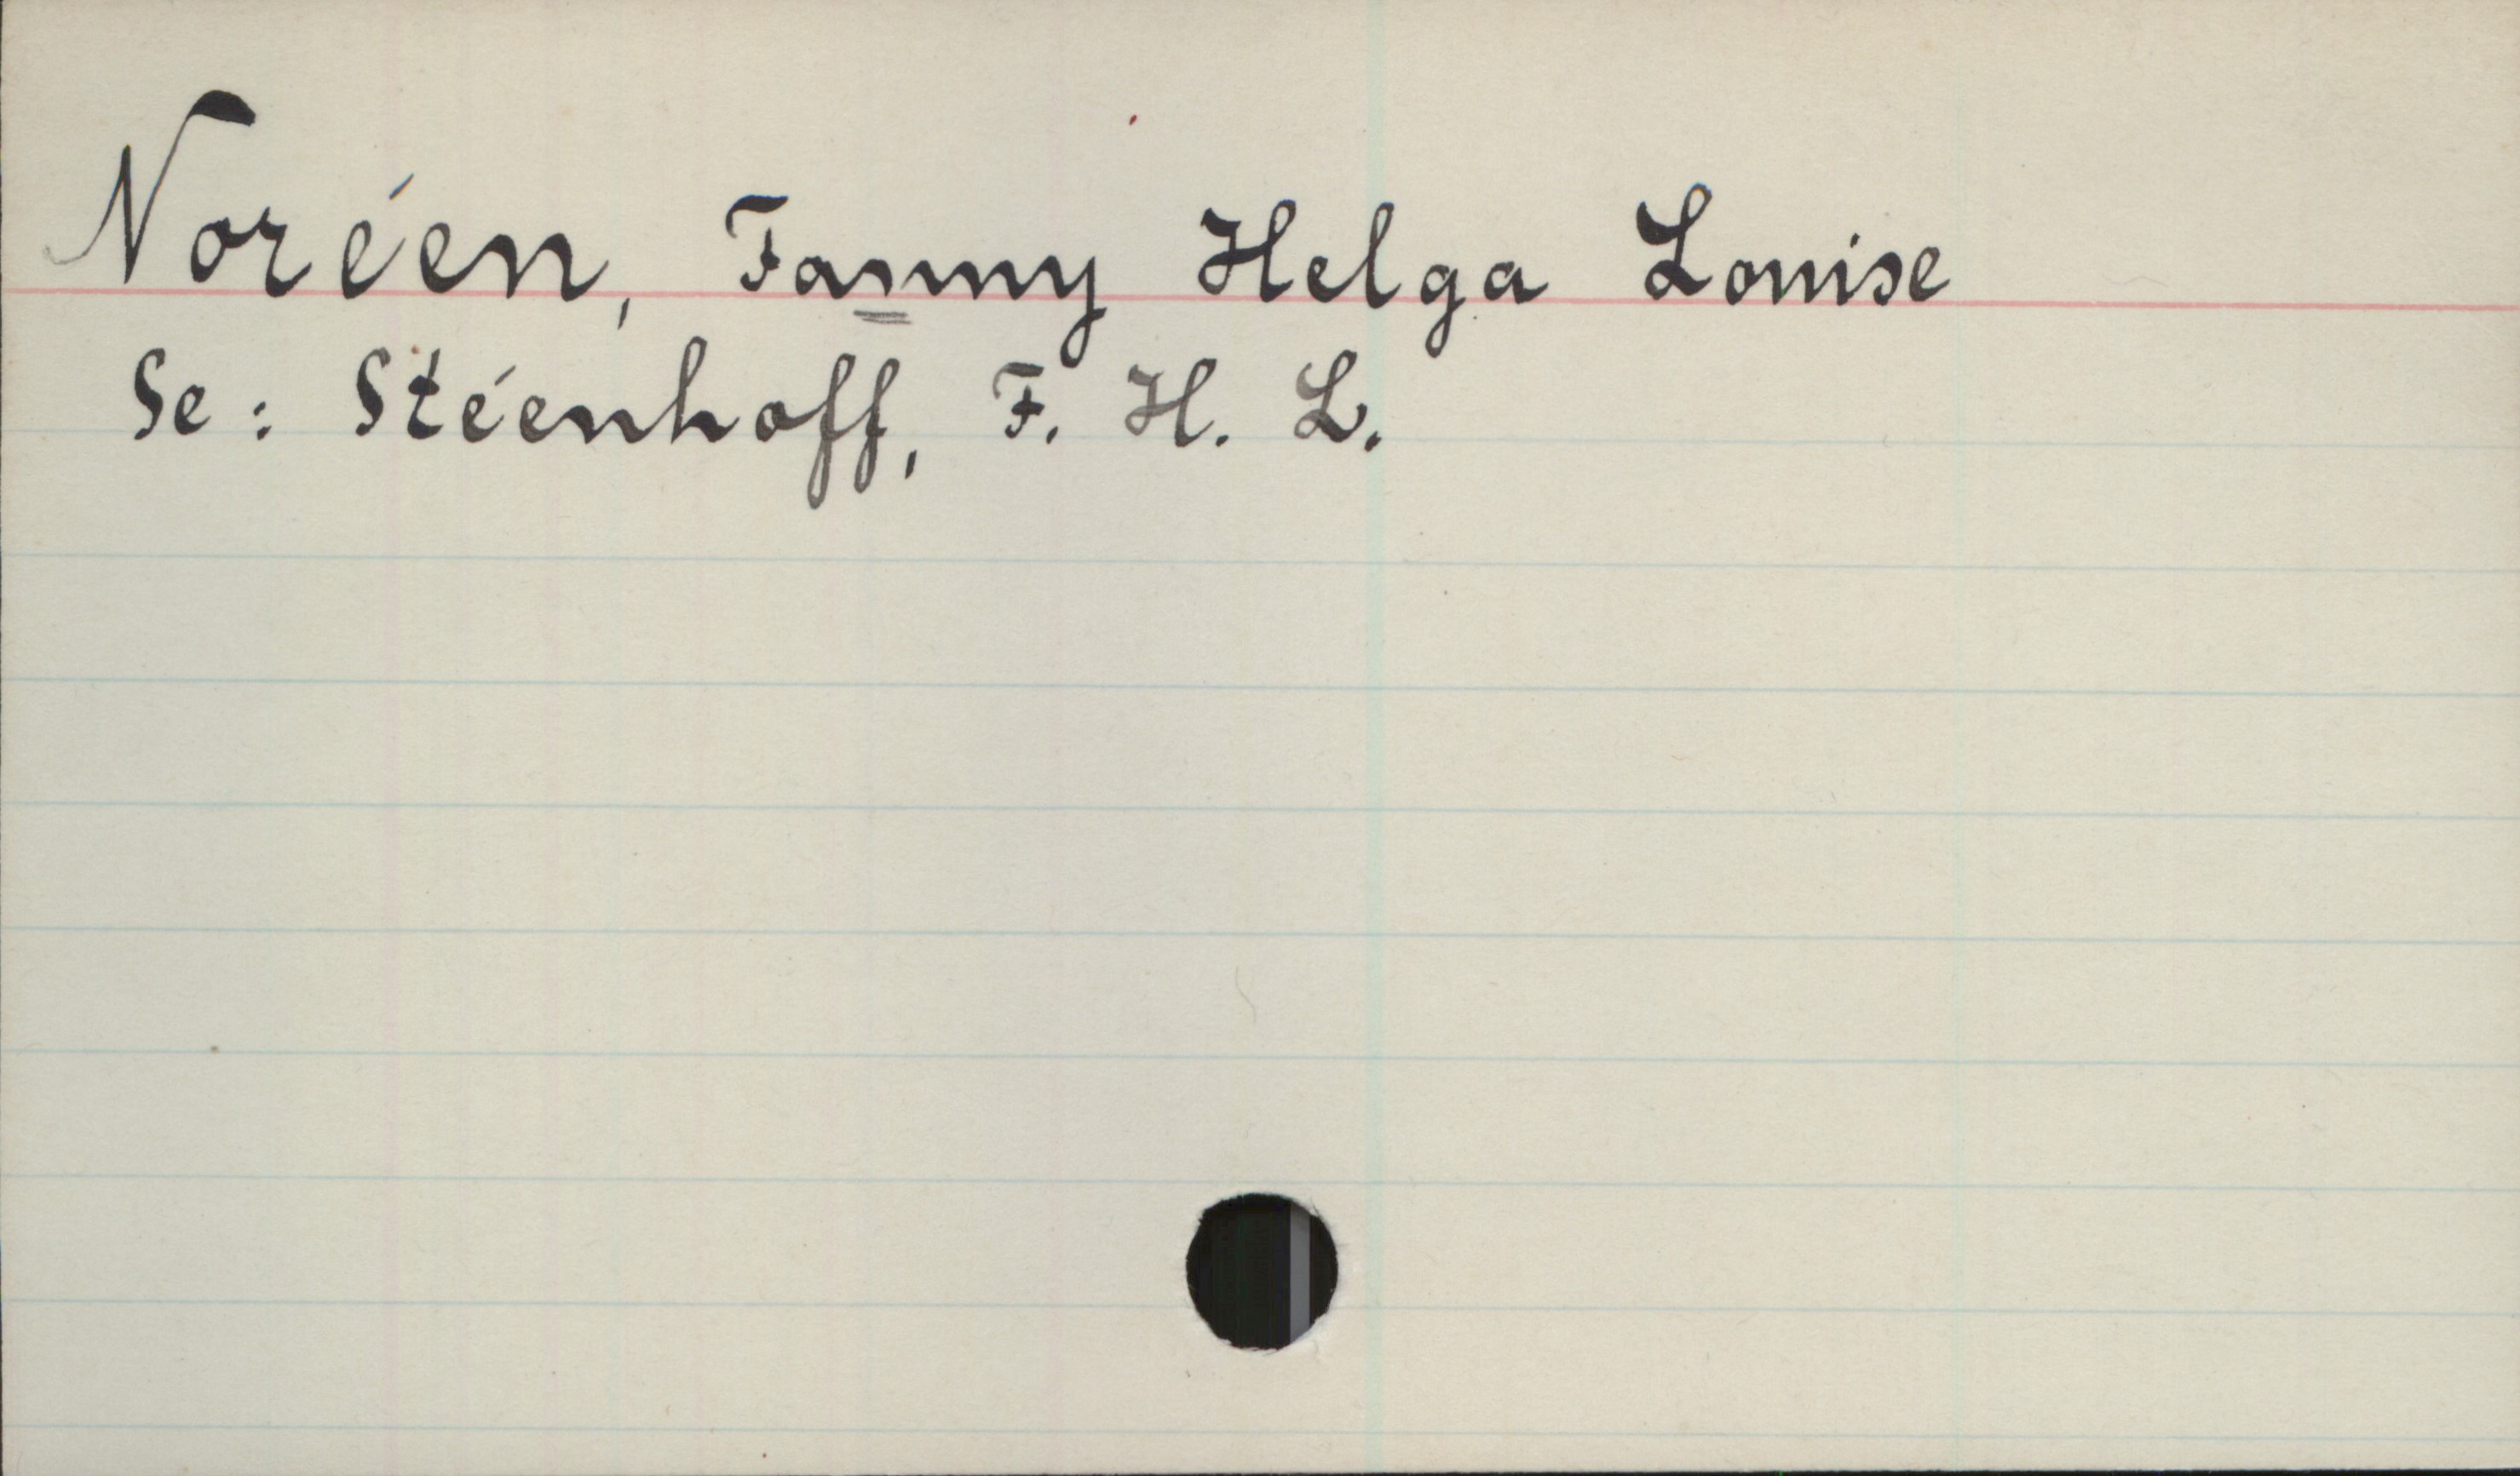 Noréen, Fanny Helga Louise
Se: Stéenhoff, F. H. L.